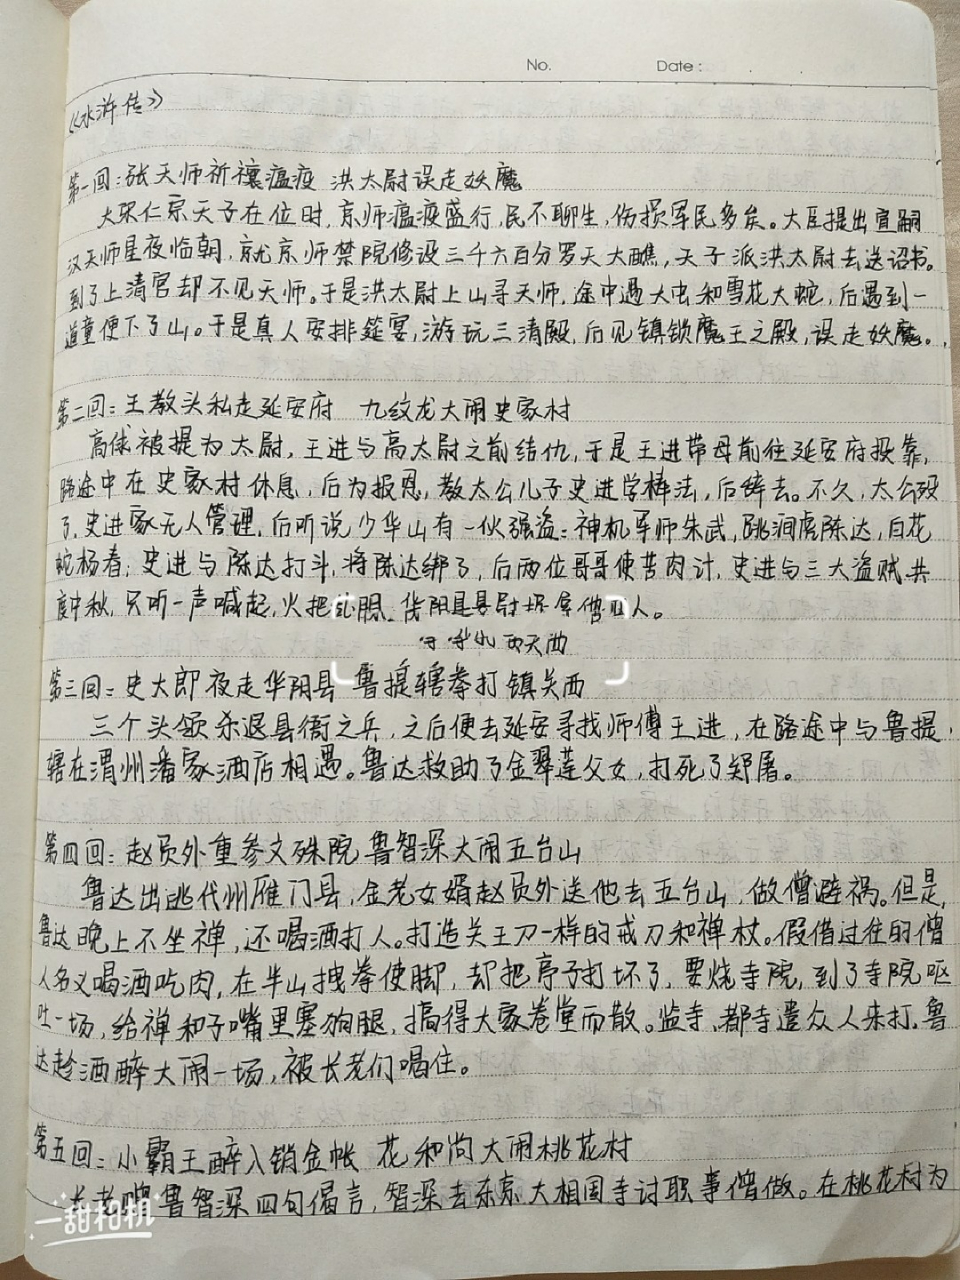 No. Date:
《水浒传》
第一回:张天师祈禳瘟疫 洪太尉误走妖魔
大宋仁宗天子在位时,京师瘟疫盛行,民不聊生,伤损军民多矣。大臣提出宣嗣
汉天师星夜临朝,就京师禁院修设三千六百分罗天大醮,天子派洪太尉去送诏书。
到了上清宫却不见天师。于是洪太尉上山寻天师,途中遇大虫和雪花大蛇,后遇到一
道童便下了山。于是真人安排筵宴,游玩三清殿,后见镇锁魔王之殿,误走妖魔。
第二回:王教头私走延安府 九纹龙大闹史家村
高俅被提为太尉,王进与高太尉之前结仇,于是王进带母前往延安府投靠,
路途中在史家村休息,后为报恩,教太公儿子史进学棒法,后辞去。不久,太公殁
了,史进家无人管理,后听说少华山有一伙强盗:神机军师朱武,跳涧虎陈达,白花
蛇杨春;史进与陈达打斗,将陈达绑了,后两位哥哥使苦肉计,史进与三大盗贼共
度中秋,只听一声喊起,火把 华阳县县尉 人。
第三回:史太郎夜走华阴县 鲁提辖拳打镇关西
三个头领杀退县衙之兵,之后便去延安寻找师傅王进,在路途中与鲁提
辖在渭州潘家酒店相遇。鲁达救助了金翠莲父女,打死了郑屠。
第四回:赵员外重参文殊院 鲁智深大闹五台山
鲁达出逃代州雁门县,金老女婿赵员外送他去五台山,做僧避祸。但是,
鲁达晚上不坐禅,还喝酒打人。打造关王刀一样的戒刀和禅杖。假借过往的僧
人名义喝酒吃肉,在半山拽拳使脚,却把亭子打坏了,要烧寺院,到了寺院呕
吐一场,给禅和子嘴里塞狗腿,搞得大家卷堂而散。监寺、都寺遣众人来打,鲁
达趁酒醉大闹一场,被长老们喝住。
第五回:小霸王醉入销金帐 花和尚大闹桃花村
长老赠鲁智深四句偈言,智深去东京大相国寺讨职事僧做。在桃花村为
一甜相机